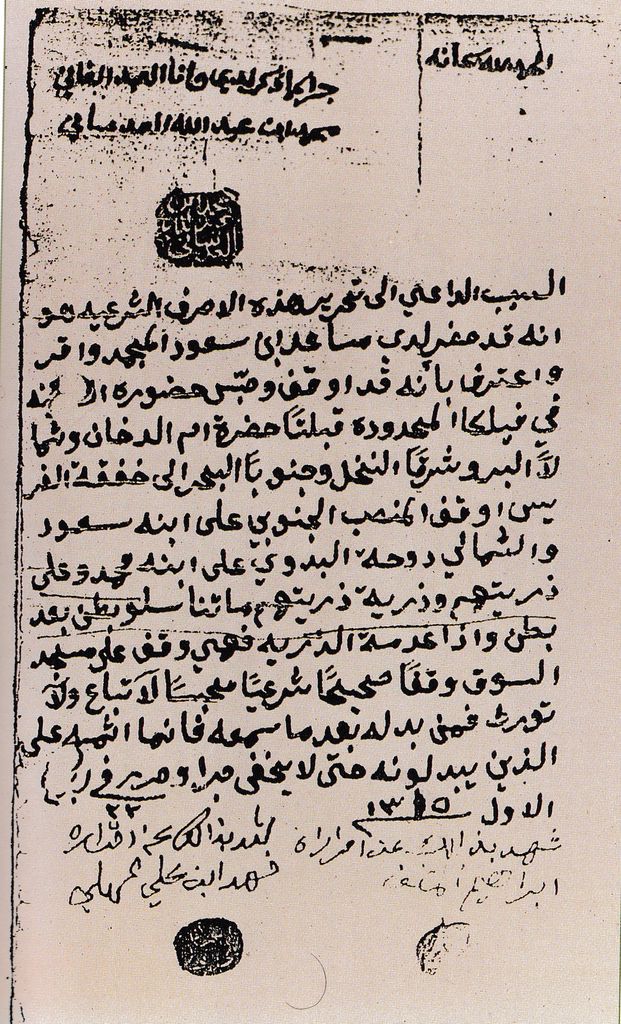 الحمد لله سبحانه
وانا العبد الفاني
محمد ابن عبد الله العدساني
السبب الداعي الى تحرير هذه الاحرف الشرعيه هو
انه قد حضر لدي مساعد ابن سعود وا قر
واعترف بأنه قد اوقف وحبس حضوره
في فيلكا المحدوده قبلتًا حضرة ام الدخان وشما
لاً البر وشرقيًا النخل وجنوباً البحر الى
اوقف المنصب الجنوبي على ابنه سعود
والشمالي دوحة البدوي على ابنه محمد وعلى
ذريتهم وذرية ذريتهم ما تناسلو بطن بعد
بطن واذا عدمة الذريه فهي وقف على مسجد
السوق وقفًا صحيحًا شرعيًا محبسًا لا تباع ولا
تورث فمن بدله بعد ما سمعه فانما اثمه على
الذين يبدلونه حتى لا يخفى جرا وحرر في ٢٢ ربيع
الاول ١٣١٥
شهد بذالك
شهد ابن علي